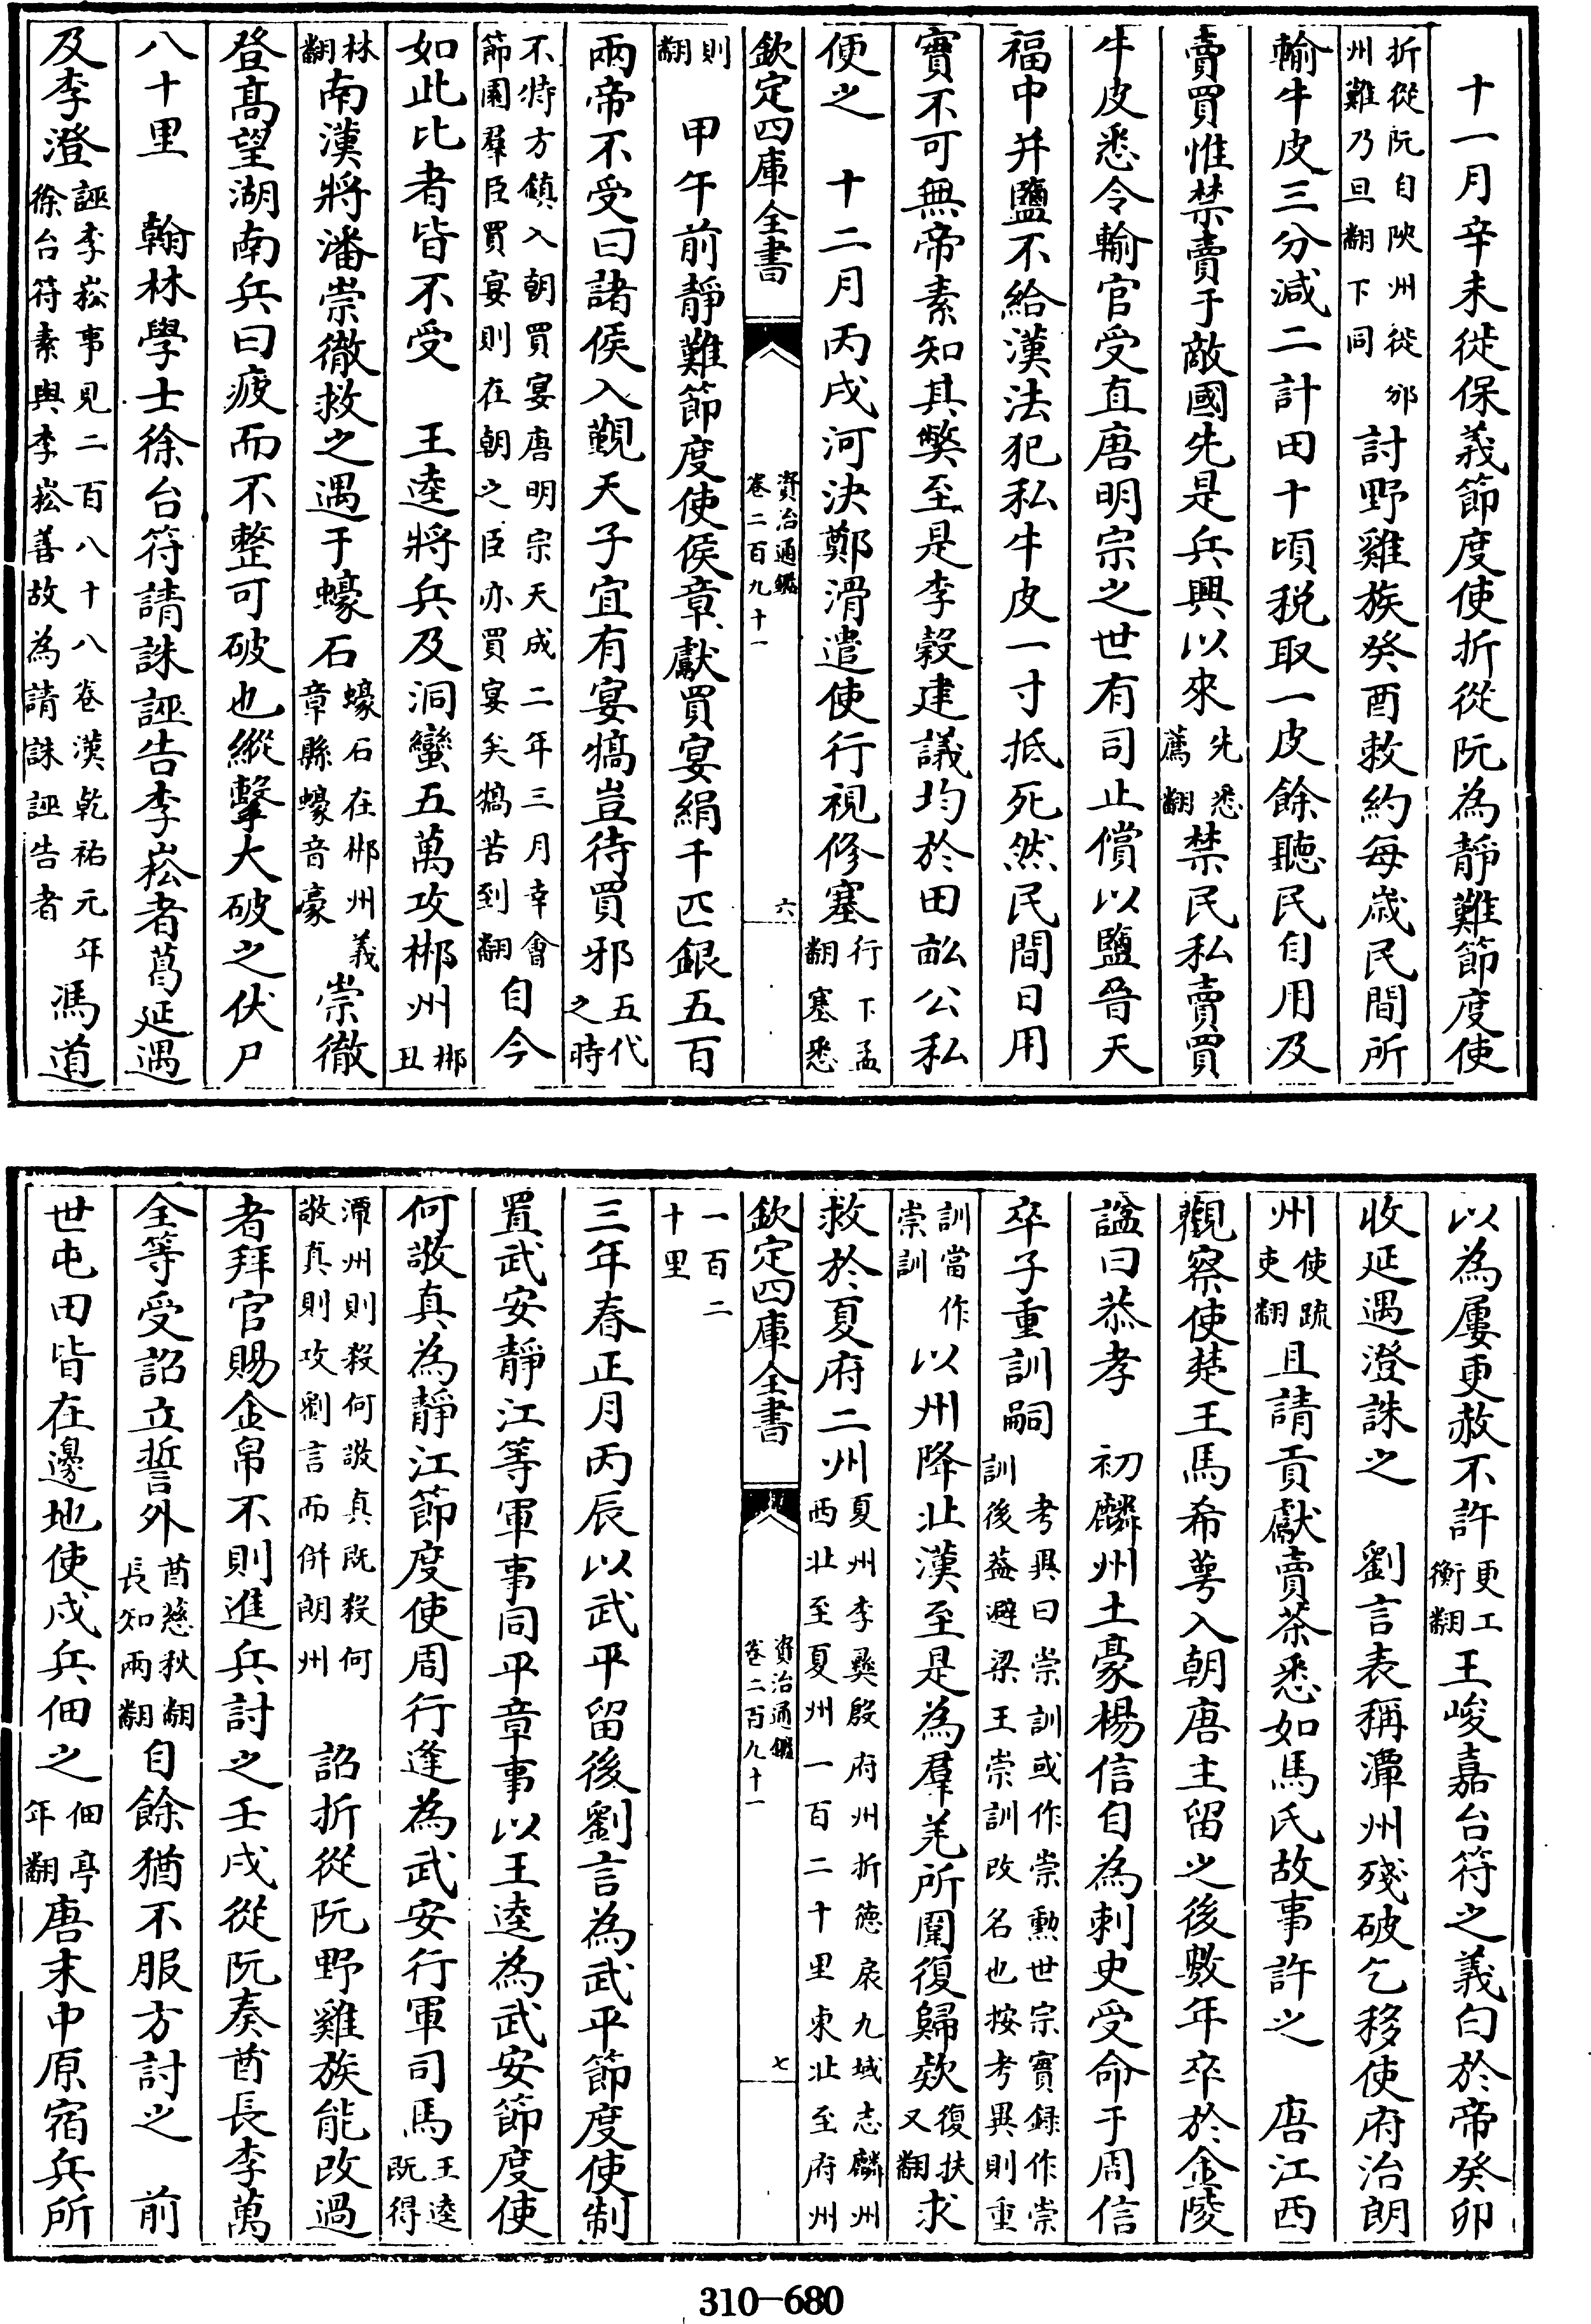 十一月辛未徙保義節度使折從阮為靜難節度使
折從阮自陜州徙邠州難乃旦翻下同討野雞族癸酉敕約每歲民間所
輸牛皮三分減二計田十頃稅取一皮餘聽民自用及
賣買惟禁賣于敵國先是兵興以來先悉薦翻禁民私賣買
牛皮悉令輸官受直唐明宗之世有司止償以鹽晉天
福中并鹽不給漢法犯私牛皮一寸抵死然民間日用
實不可無帝素知其弊至是李穀建議均於田畝公私
便之 十二月丙戌河決鄭滑遣使行視修塞行下孟翻塞悉
欽定四庫全書 資治通鑑卷二百九十一 六
則翻 甲午前靜難節度使侯章獻買宴絹千匹銀五百
兩帝不受曰諸侯入覲天子宜有宴犒豈待買邪五代之時
不特方鎮入朝買宴唐明宗天成二年三月幸會節園羣臣買宴則在朝之臣亦買宴矣犒苦到翻自今
如此比者皆不受 王逵將兵及洞蠻五萬攻郴州郴丑
林翻南漢將潘崇徹救之遇于蠔石蠔石在郴州義章縣蠔音豪崇徹
登高望湖南兵曰疲而不整可破也縱擊大破之伏尸
八十里 翰林學士徐台符請誅誣告李崧者葛延遇
及李澄誣李崧事見二百八十八卷漢乾祐元年徐台符素與李崧善故為請誅誣告者馮道
以為屢更赦不許更工衡翻王峻嘉台符之義白於帝癸卯
收延遇澄誅之 劉言表稱潭州殘破乞移使府治朗
州使疏吏翻且請貢獻賣茶悉如馬氏故事許之 唐江西
觀察使楚王馬希萼入朝唐主留之後數年卒於金陵
諡曰恭孝 初麟州土豪楊信自為刺史受命于周信
卒子重訓嗣考異曰崇訓或作崇勳世宗實録作崇訓後蓋避梁王崇訓改名也按考異則重
訓當作崇訓以州降北漢至是為羣羌所圍復歸欵復扶又翻求
救於夏府二州夏州李彝殷府州折德扆九域志麟州西北至夏州一百二十里東北至府州
欽定四庫全書 資治通鑑卷二百九十一 七
一百二十里
三年春正月丙辰以武平留後劉言為武平節度使制
置武安靜江等軍事同平章事以王逵為武安節度使
何敬真為靜江節度使周行逢為武安行軍司馬王逵既得
潭州則殺何敬真既殺何敬真則攻劉言而併朗州 詔折從阮野雞族能改過
者拜官賜金帛不則進兵討之壬戌從阮奏酋長李萬
全等受詔立誓外酋慈秋翻長知兩翻自餘猶不服方討之 前
世屯田皆在邊地使戍兵佃之佃亭年翻唐末中原宿兵所
310-680